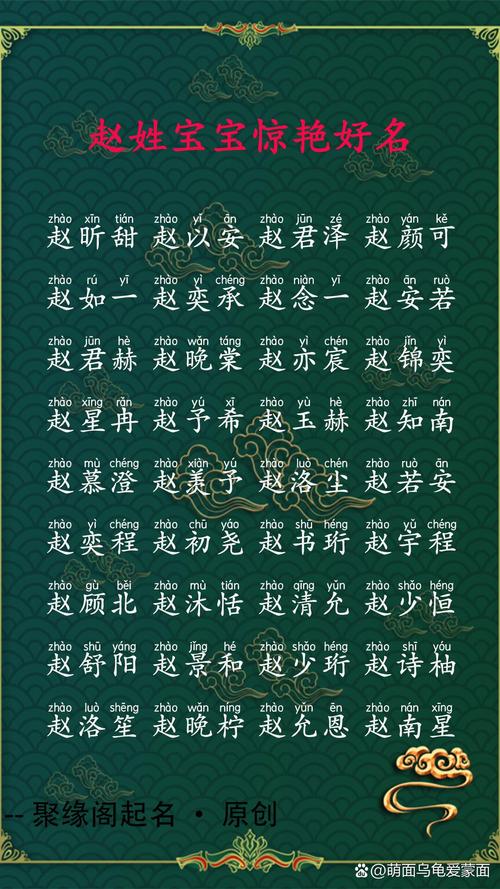 赵姓宝宝惊艳好名
zhào xīn tián zhào yǐ ān zhào jūn zé zhào yán kě
赵昕甜 赵以安 赵君泽 赵颜可
zhào rú yī zhào yì chéng zhào niàn yī zhào ān ruò
赵如一 赵奕承 赵念一 赵安若
zhào jūn hè zhào wǎn táng zhào yì chén zhào jǐn yì
赵君赫 赵晚棠 赵亦宸 赵锦奕
zhào xīng rǎn zhào yú xī zhào yù hè zhào zhī nán
赵星冉 赵予希 赵玉赫 赵知南
zhào mù chéng zhào xiàn yú zhào luò chén zhào ruò ān
赵慕澄 赵羡予 赵洛尘 赵若安
zhào yì chéng zhào chū yáo zhào shū héng zhào yǔ chéng
赵奕程 赵初尧 赵书珩 赵宇程
zhào gù běi zhào mù tián zhào qīng yǔn zhào shǎo héng
赵顾北 赵沐恬 赵清允 赵少恒
zhào shū yáng zhào jǐng hé zhào shǎo héng zhào shī yòu
赵舒阳 赵景和 赵少珩 赵诗柚
zhào luò shēng zhào wǎn níng zhào yǔn ēn zhào nán xīng
赵洛笙 赵晚柠 赵允恩 赵南星
-- 聚缘阁起名 · 原创
萌面乌龟爱蒙面